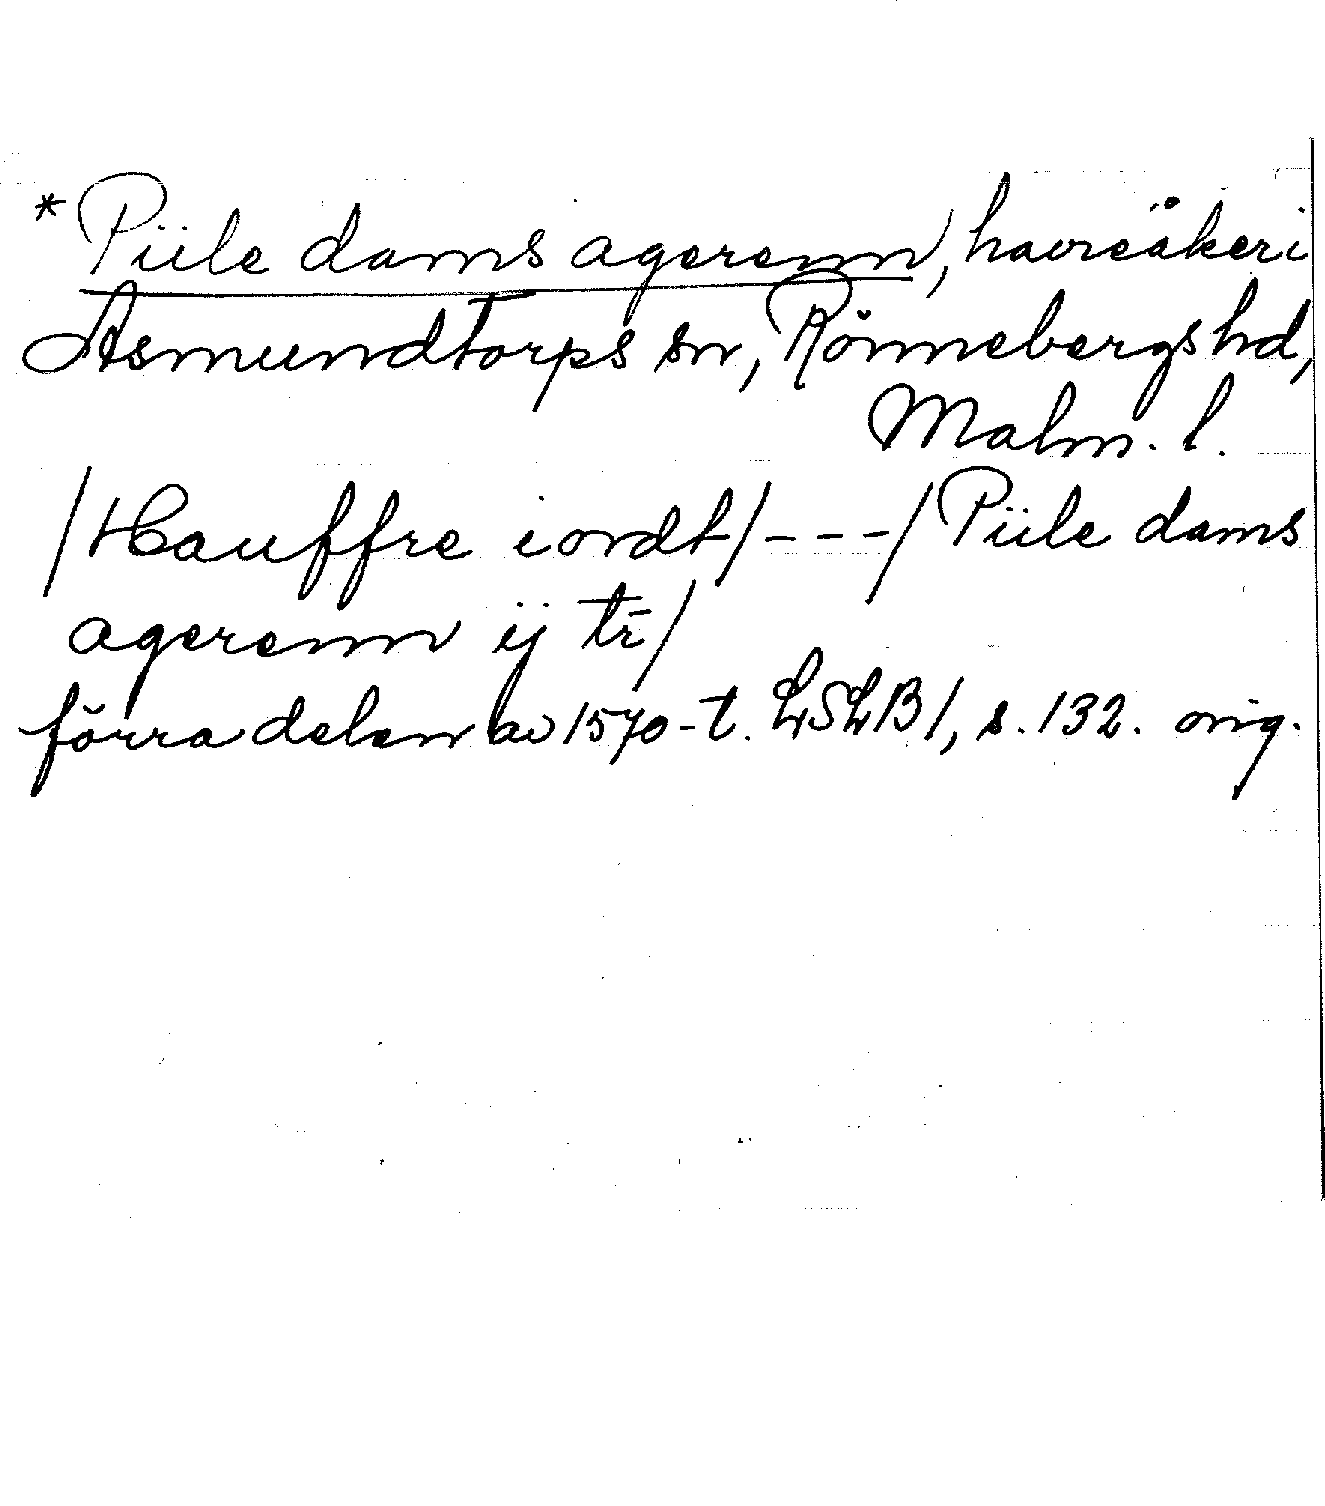 *Piile dams agerenn, havreåker i
Asmundtorps sn, Rönnebergs hd,
Malm. l.
/Hauffre iordt/---/Piile dams
agerenn ij tr̄/
förra delen av 1570-t. LSLB1, s. 132. orig.